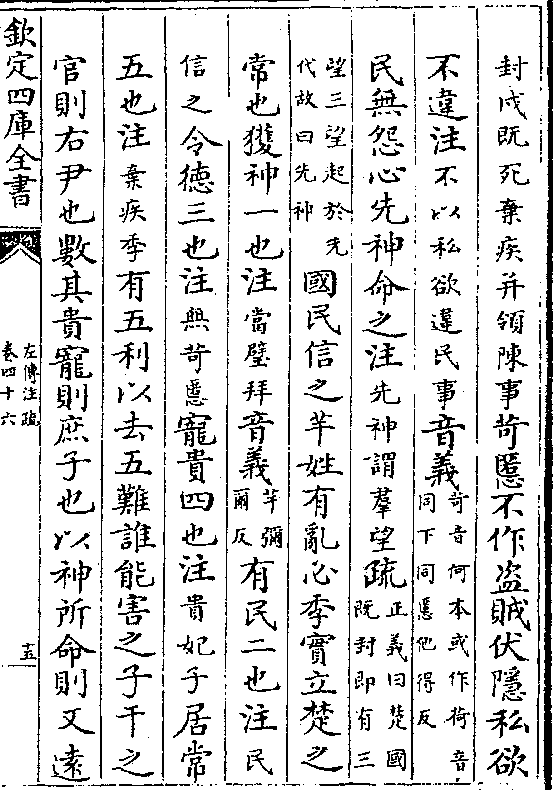 封戍既死棄疾并領陳事苛慝不作盜賊伏隱私欲
不違注不以私欲違民事音義苛音何本或作荷音同下同慝他得反
民無怨心先神命之注先神謂羣望疏正義曰楚國既封即有三
望三望起於先代故曰先神國民信之芊姓有亂必季實立楚之
常也獲神一也注當璧拜音義芊彌爾反有民二也注民
信之令德三也注無苛慝寵貴四也注貴妃子居常
五也注棄疾季有五利以去五難誰能害之子干之
官則右尹也數其貴寵則庶子也以神所命則又遠
欽定四庫全書
左傳注疏
卷四十六
十五